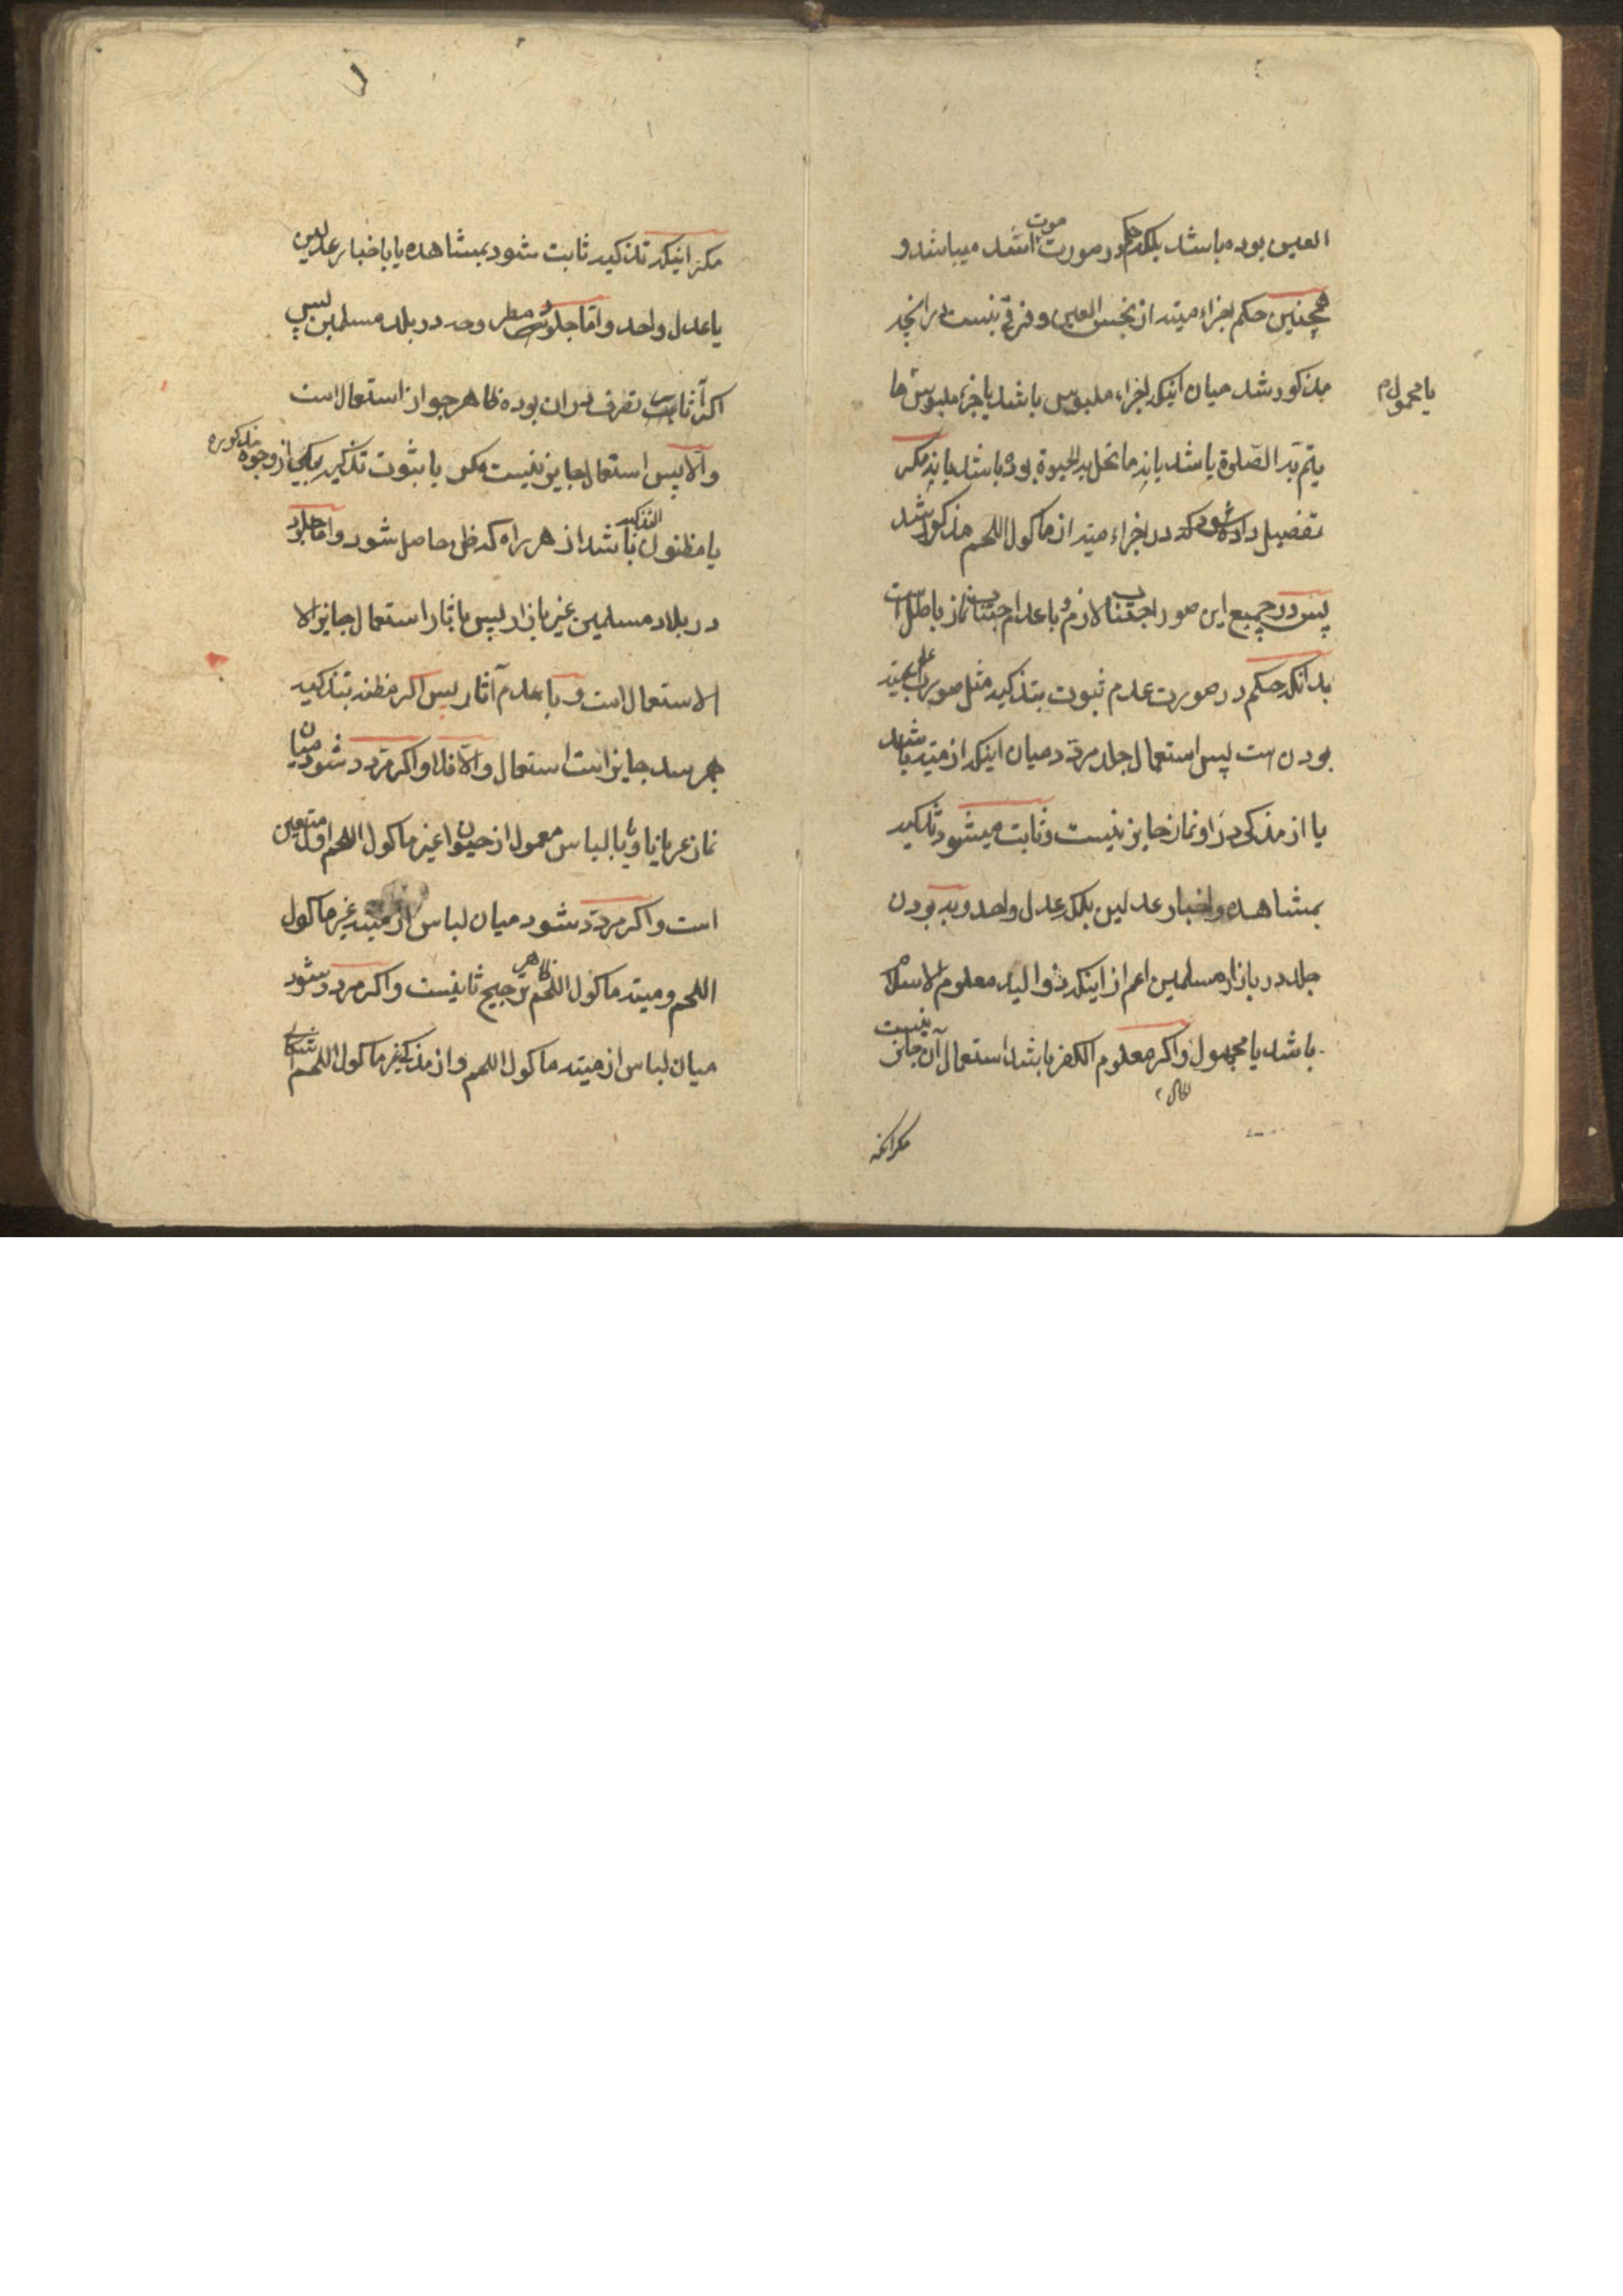 العین بوده باشد بلکه حکم در صورت موت اشد میباشد و
همچنین حکم اجزاء میته از نجس العین و فرقی نیست در انچه
مذکور شد میان اینکه اجزاء ملبوس باشد یا جزء ملبوس ما
یا محمول
یتم به الصّلوة باشد یا نه ما تحل به الحیوة بوده باشد یا نه مکر
تفصیل داده شود که در اجزاء میته از ماکول اللحم مذکور شد
پس در جمیع این صور اجتناب لازم و با عدم اجتناب نماز باطل است
بدانکه حکم در صورت عدم ثبوت تذکیه مثل صورت علم بمیته
بودن است پس استعمال جلد مردّد میان اینکه از میته باشد
یا از مذکی در او نماز جایز نیست و ثابت میشود تذکیه
بمشاهده و اخبار عدلین بلکه عدل واحد و به بودن
جلد در بازار مسلمین اعم از اینکه ذو الید معلوم الاسلام
باشد یا مجهول و اکر معلوم الکفر باشد استعمال آن جایز نیست
مکر انکه
مکر اینکه تذکیه ثابت شود بمشاهده یا باخبار عدلین
یا عدل واحد و امّا جلود مطروحه در بلد مسلمین پس
اکر آثار تصرف در ان بوده ظاهر جواز استعمال است
و الا پس استعمال جایز نیست مکر با ثبوت تذکیه بیکی از وجوه مذکوره
یا مظنون التذکیه باشد از هر راه که ظن حاصل شود و اما جلود
در بلاد مسلمین غیر بازار پس با آثار استعمال جایز الا
الاستعمال است و با عدم آثار پس اکر مظنه بتذکیه
بهم رسد جایز است استعمال و الّا فلا و اکر مردد شود میان
نماز عریانا و یا با لباس معمول از حیوان غیر ماکول اللحم اول متعین
است و اکر مردّد شود میان لباس از میته غیر ماکول
اللحم و میته ماکول اللحم ظاهر ترجیح ثانیست و اکر مردد شود
میان لباس از میته ماکول اللحم و از مذکی غیر ماکول اللحم